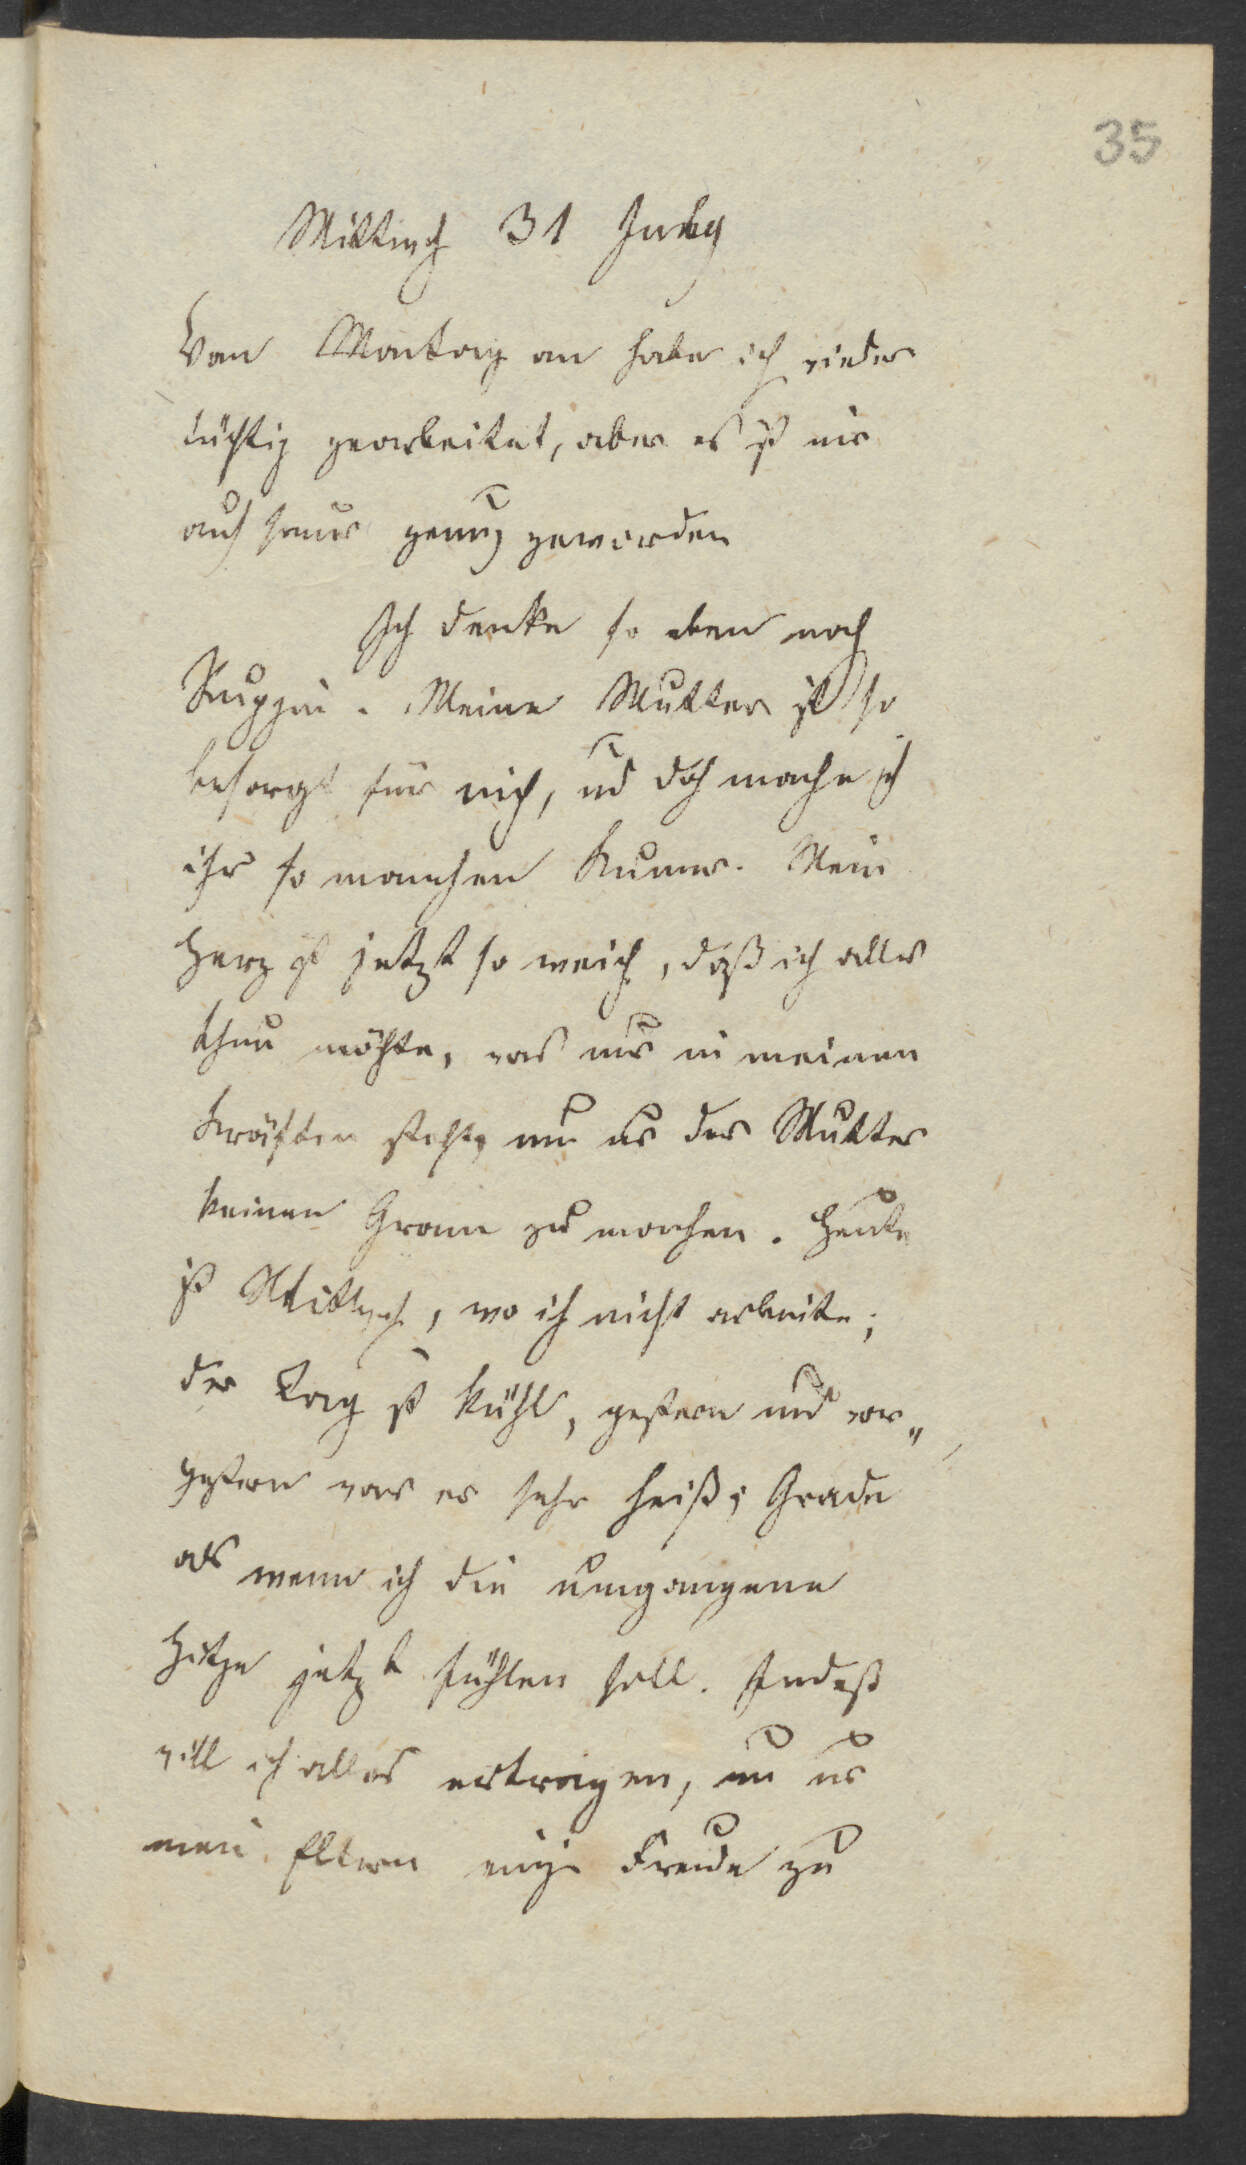 35
Mittwch 31 July
Von Montag an habe ich wieder
tüchtig gearbeitet, aber es ist mir
auch sauer genug geworden
Ich denke so eben nach
Ruppin. Meine Mutter ist so
besorgt für mich, und doch mache ich
ihr so manchen Kumer. Mein
Herz ist jetzt so weich, daß ich alles
thun möchte, was nur in meinen
Kräften steht, um nur der Mutter
keinen Gram zu machen. Heute
ist Mittwch, wo ich nicht arbeite;
der Tag ist kühl, gestern und vor„
gestern war es sehr heiß; Grade
als wenn ich die umgangene
Hitze jetzt fühlen soll. Indeß
will ich alles ertragen, um nur
mein Eltern einige Freude zu